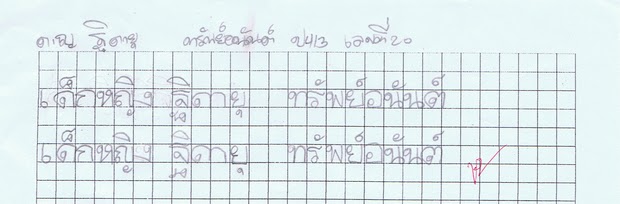 ด.ญ. ฐิตายุ ทรัพย์อนันต์ ป4/3 เลขที่20
เด็กหญิง ฐิตายุ ทรัพย์อนันต์
เด็กหญิง ฐิตายุ ทรัพย์อนันต์